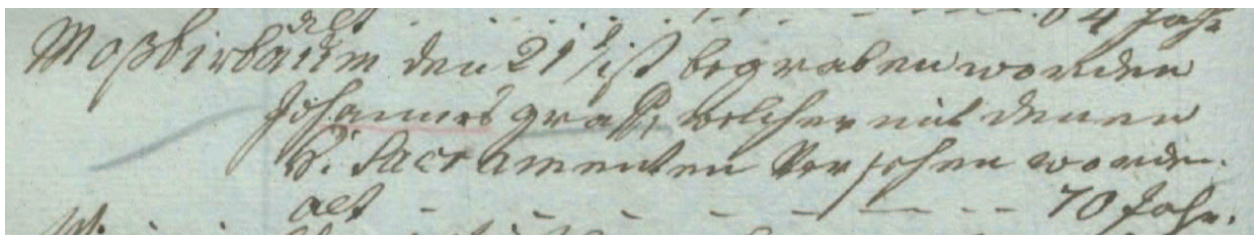 alt - - - - - - 64 Jahr
Moßbirbaum den 21t ist begraben worden
Johannes graff, welcher mit denen
H: Sacramenten Versehen worden.
alt - - - - - - - - 70 Jahr.